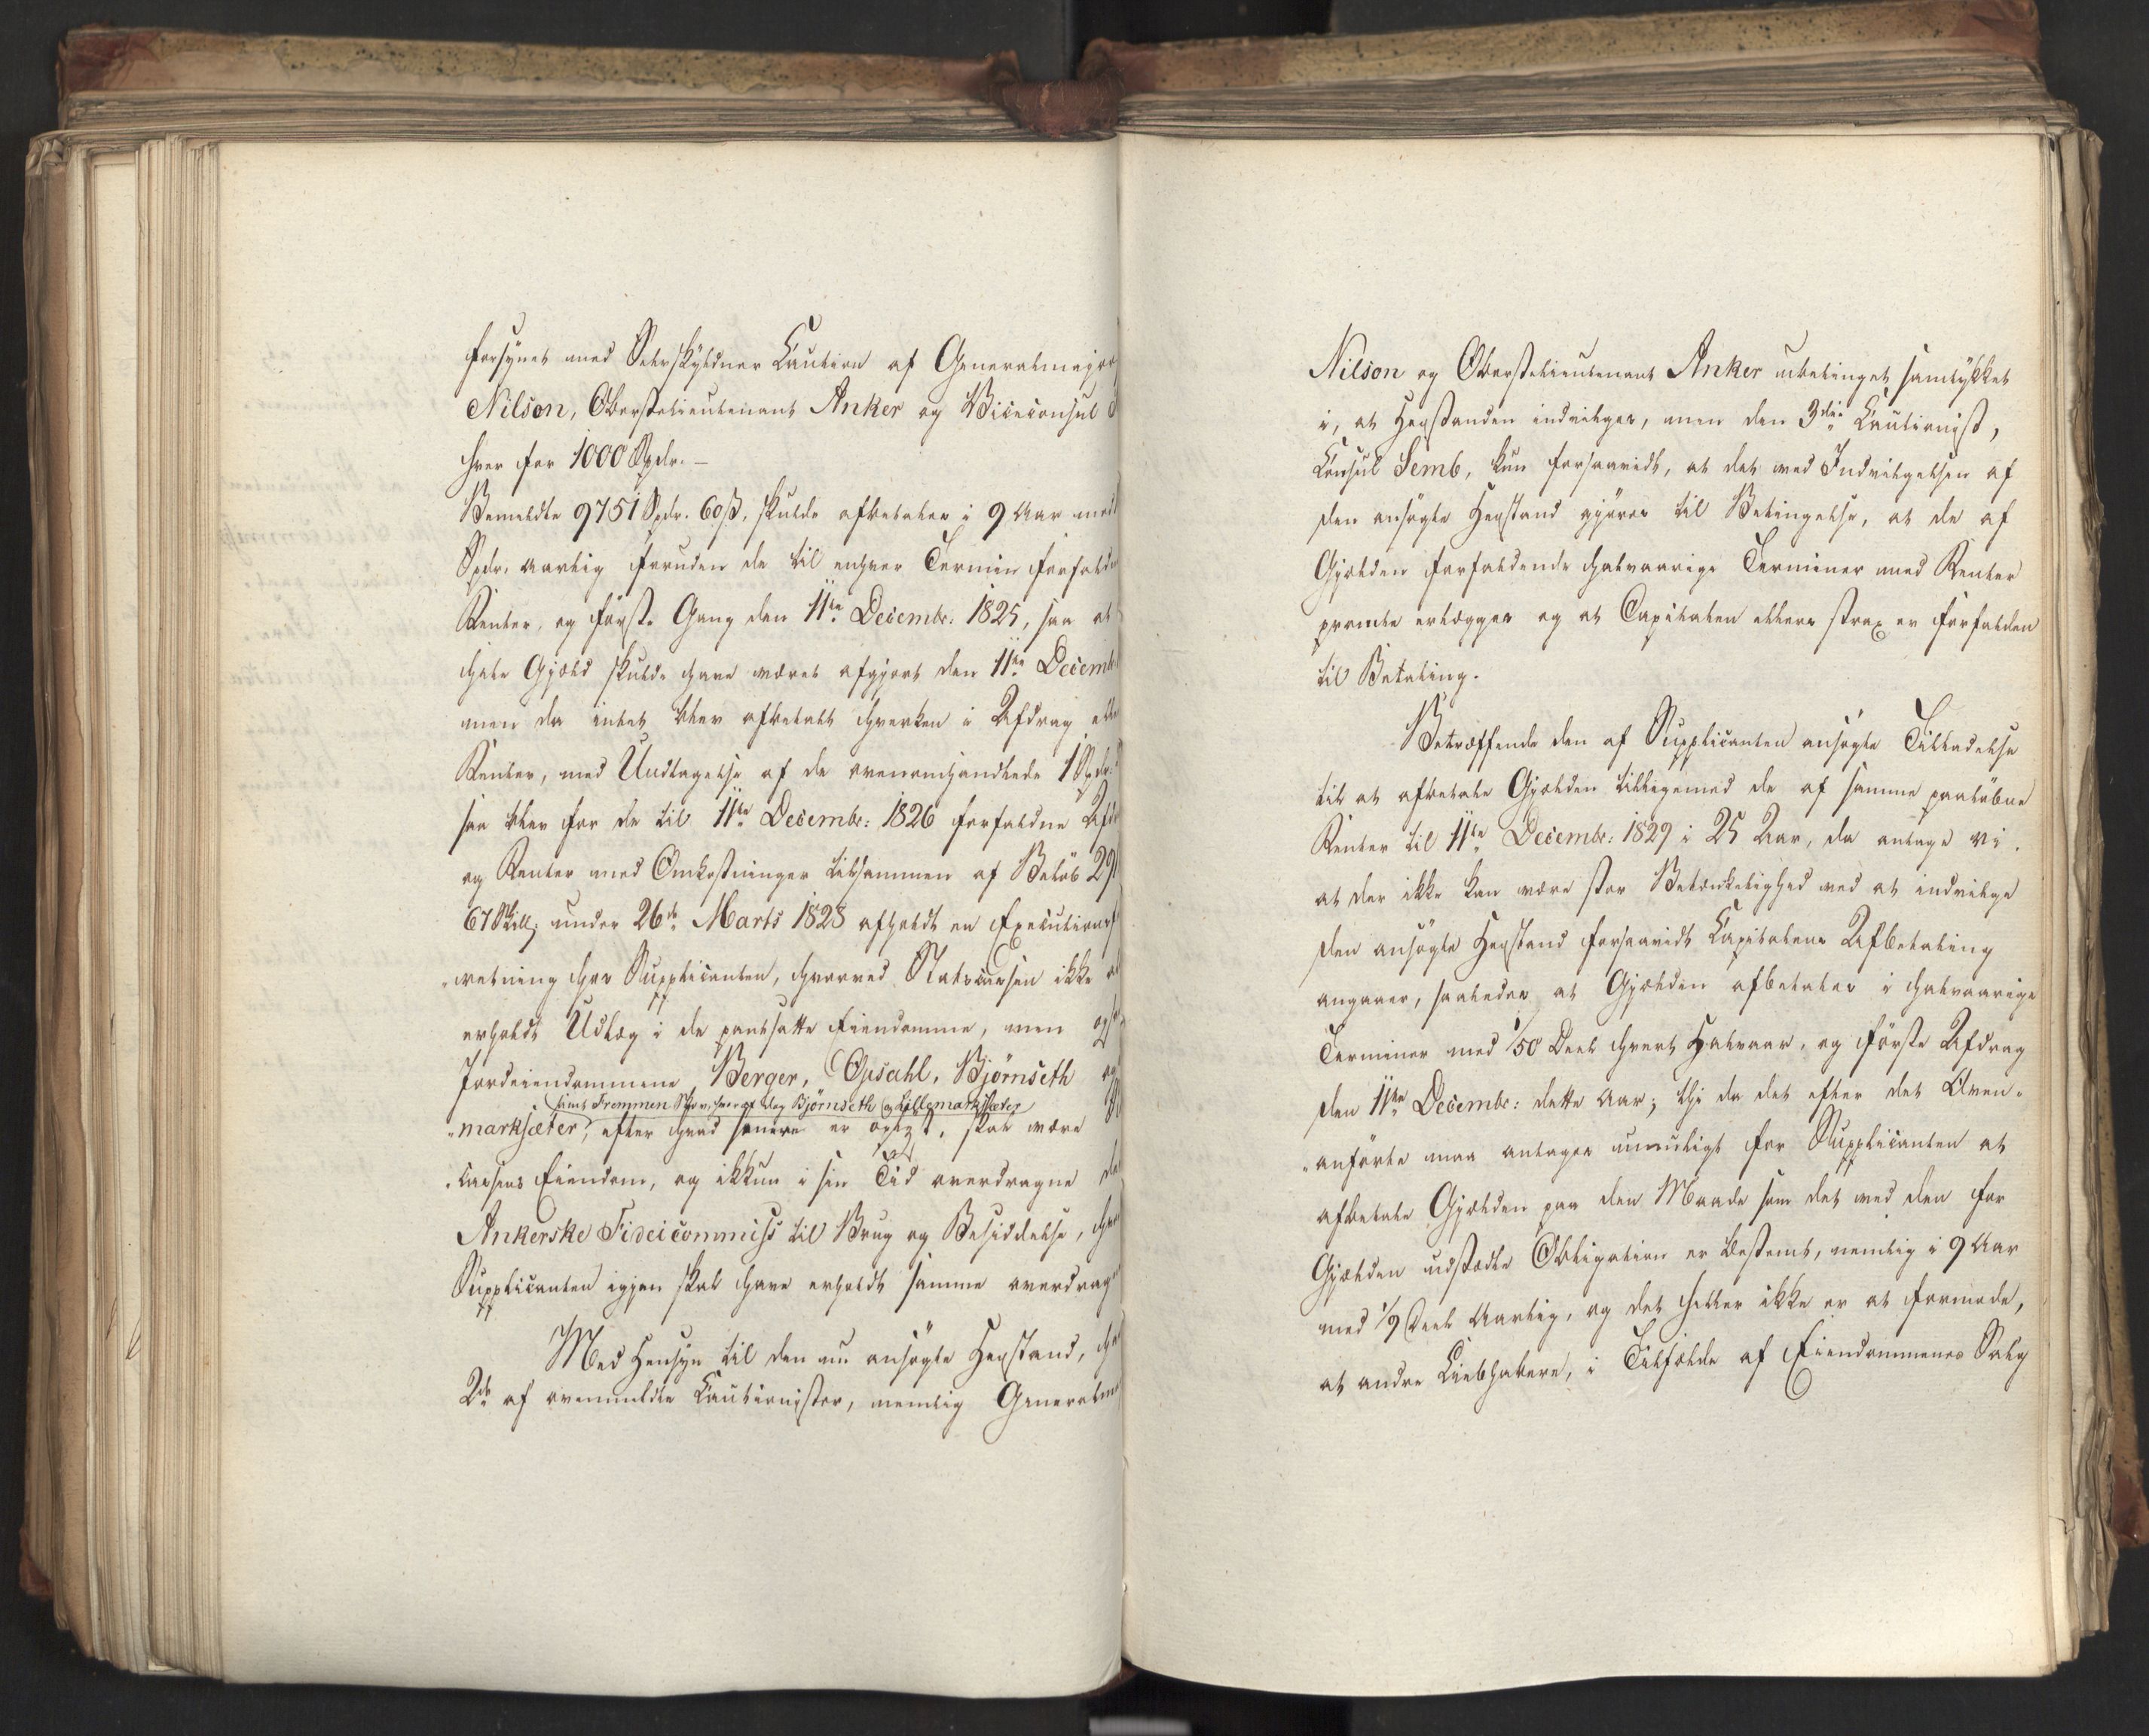 forsynet med Selvskyldner Caution af Generalmajor
Nilson, Oberstelieutenant Anker og Viceconsul
hver for 1000 Spdr. –
Bemeldte 9751 Spdr. 60 ß, skulde afbetales i 9 Aar med
Spdr. aarlig foruden de til enhver Termin forfaldne
Renter, og første Gang den 11te Decembr: 1825, saa at
hele Gjæld skulde have været afgjort den 11te Decemb
men da intet blev afbetalt hverken i Afdrag eller
Renter, med Undtagelse af de ovenomhandlede 1 Spdr.
saa blev for de til 11te Decembr: 1826 forfaldne Afdr
og Renter med Omkostninger tilsammen af Beløb 29
67 Skill; under 26de Marts 1828 afholdt en Executionsf
„retning hos Supplicanten, hvorved Statscassen ikke
erholdt Udlæg i de pantsatte Eiendomme, men ogs
Jordeiendommene, Berger, Opsahl, Bjørnseth og
samt Tremmen hvoraf dog Bjørnseth og Lillemarksæter
„marksæter, efter hvad senere er oplyst, skal være
„cassens Eiendom, og ikkun i sin Tid overdragne det
Ankerske Fideicommiss til Brug og Besiddelse,
Supplicanten igjen skal have erholdt samme overdrag
Med Hensyn til den nu ansøgte Henstand,
2de af ovenmeldte Cautionister, nemlig Generalm
Nilson og Oberstelieutenant Anker ubetinget samtykket
i, at Henstanden indvilges, men den 3die Cautionist,
Consul Semb, kun forsaavidt, at det ved Indvilgelsen af
den ansøgte Henstand gjøres til Betingelse, at de af
Gjælden forfaldende halvaarige Terminer med Renter
promte erlægges og at Capitalen ellers strax er forfalden
til Betaling.
Betræffende den af Supplicanten ansøgte Tilladelse
til at afbetale Gjælden tilligemed de af samme paaløbne
Renter til 11te Decembr: 1829 i 25 Aar, da antage vi.
at der ikke kan være stor Betænkelighed ved at indvilge
den ansøgte Henstand forsaavidt Capitalens Afbetaling
angaaer, saaledes at Gjælden afbetales i halvaarige
Terminer med 1/50 Deel hvert Halvaar, og første Afdrag
den 11te Decembr: dette Aar; thi da det efter det Oven-
„anførte maa antages umuligt for Supplicanten at
afbetale Gjælden paa den Maade som det ved den for
Gjælden udstædte Obligation er bestemt, nemlig i 9 Aar
med 1/9 Deel aarlig, og det heller ikke er at formode,
at andre Liebhabere, i Tilfælde af Eiendommenes Salg